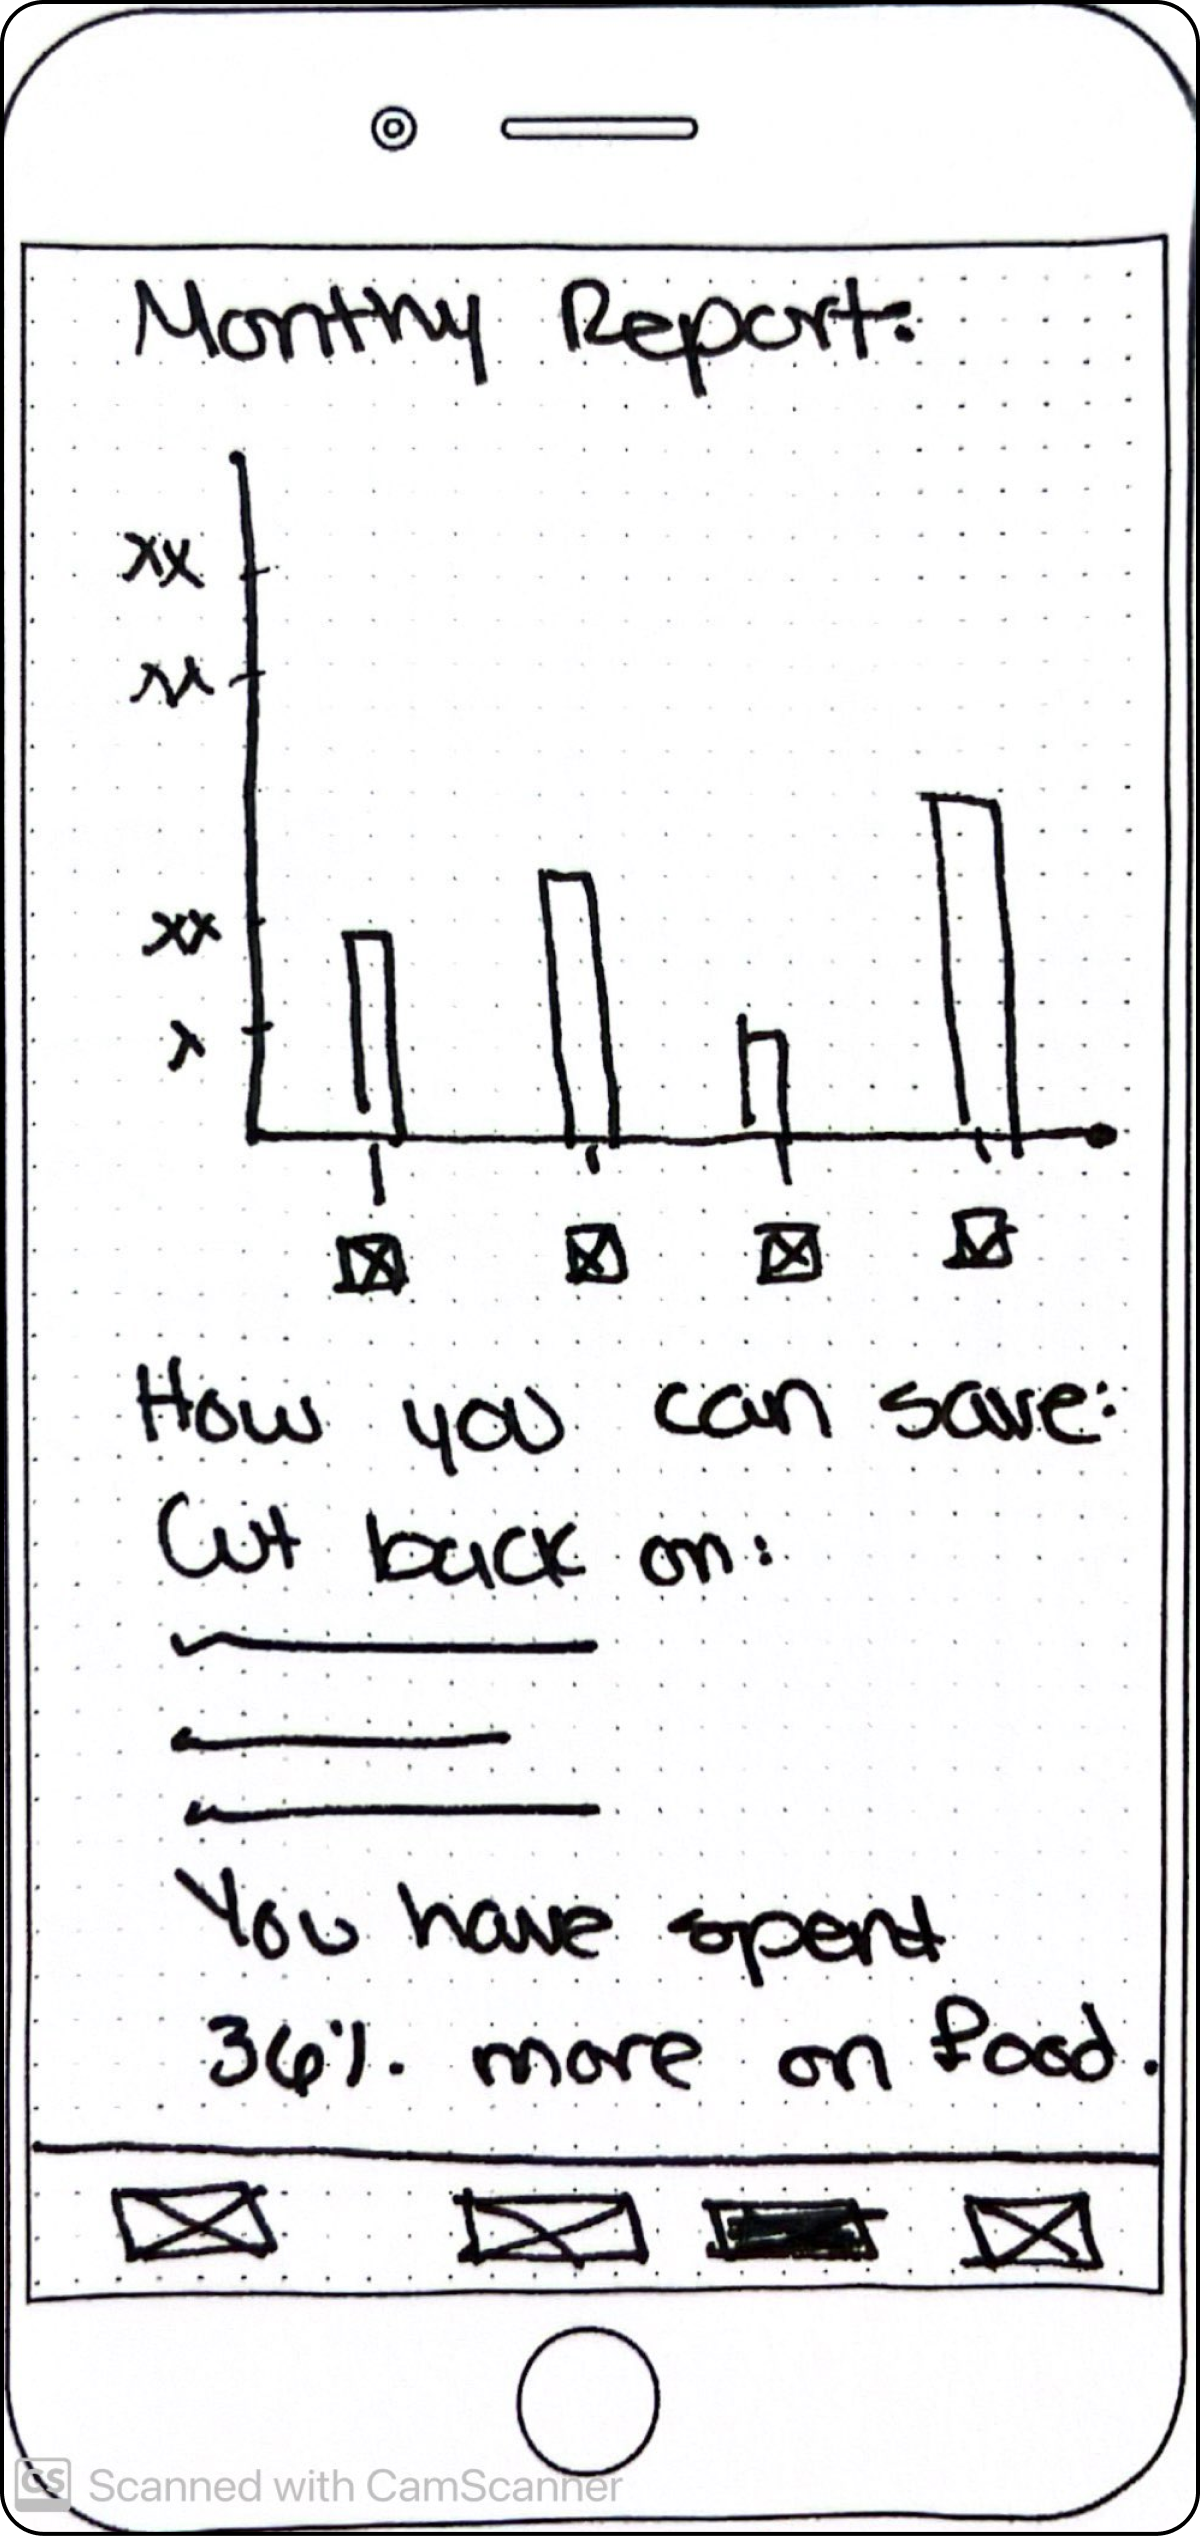 Monthy Report:
xx
xx
xx
x
How you can save:
Cut back on:
You have spent
36%. more on food.
CS Scanned with CamScanner